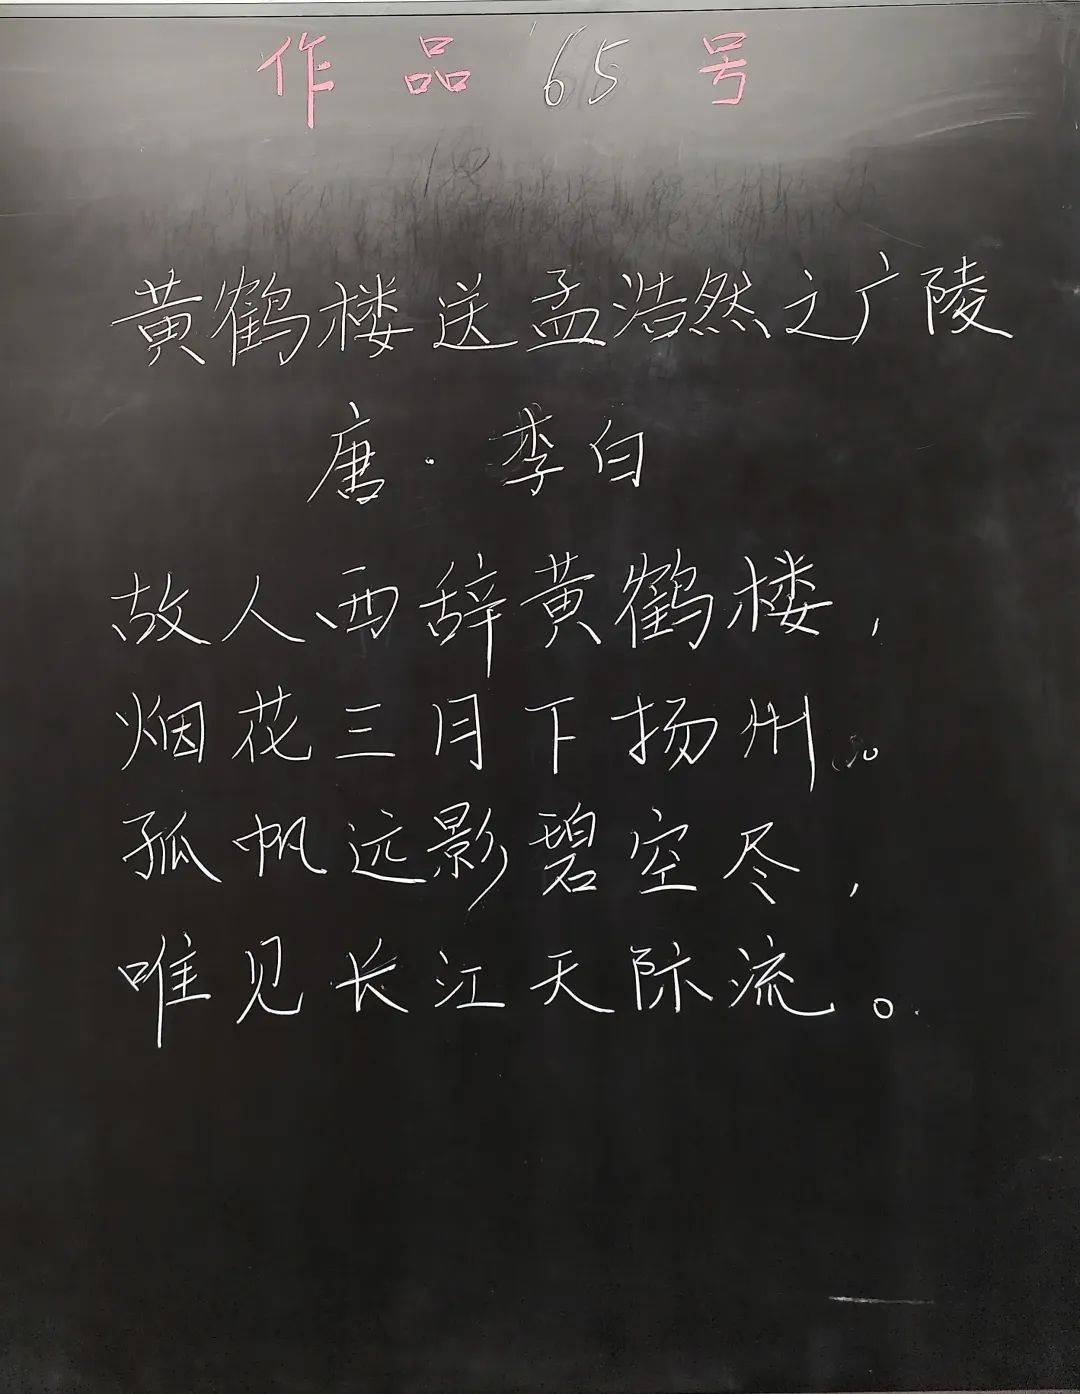 作品65号
黄鹤楼送孟浩然之广陵
唐·李白
故人西辞黄鹤楼，
烟花三月下扬州。
孤帆远影碧空尽，
唯见长江天际流。